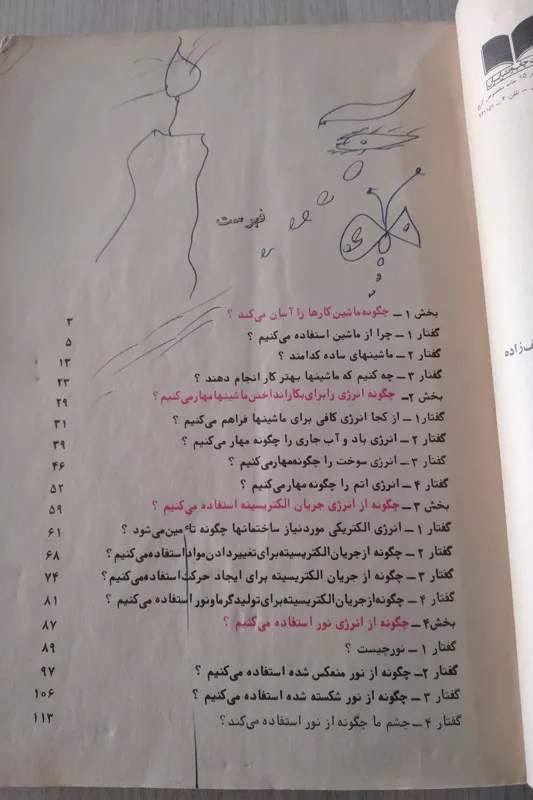 فهرست
بخش ۱ – چگونه ماشین کارها را آسان می‌کند ؟ ۳
گفتار ۱ – چرا از ماشین استفاده می‌کنیم ؟ ۵
گفتار ۲ – ماشینهای ساده کدامند ؟ ۱۳
گفتار ۳ – چه کنیم که ماشینها بهتر کار انجام دهند ؟ ۲۳
بخش ۲ – چگونه انرژی را برای بکار انداختن ماشینها مهار می‌کنیم ؟ ۲۹
گفتار ۱ – از کجا انرژی کافی برای ماشینها فراهم می‌کنیم ؟ ۳۱
گفتار ۲ – انرژی باد و آب جاری را چگونه مهار می‌کنیم ؟ ۳۹
گفتار ۳ – انرژی سوخت را چگونه مهار می‌کنیم ؟ ۴۶
گفتار ۴ – انرژی اتم را چگونه مهار می‌کنیم ؟ ۵۲
بخش ۳ – چگونه از انرژی جریان الکتریسیته استفاده می‌کنیم ؟ ۵۹
گفتار ۱ – انرژی الکتریکی موردنیاز ساختمانها چگونه تأمین می‌شود ؟ ۶۱
گفتار ۲ – چگونه از جریان الکتریسیته برای تغییر دادن مواد استفاده می‌کنیم ؟ ۶۸
گفتار ۳ – چگونه از جریان الکتریسیته برای ایجاد حرکت استفاده می‌کنیم ؟ ۷۴
گفتار ۴ – چگونه از جریان الکتریسیته برای تولید گرما و نور استفاده می‌کنیم ؟ ۸۱
بخش ۴ – چگونه از انرژی نور استفاده می‌کنیم ؟ ۸۷
گفتار ۱ – نور چیست ؟ ۸۹
گفتار ۲ – چگونه از نور منعکس شده استفاده می‌کنیم ؟ ۹۷
گفتار ۳ – چگونه از نور شکسته شده استفاده می‌کنیم ؟ ۱۰۶
گفتار ۴ – چشم ما چگونه از نور استفاده می‌کند ؟ ۱۱۳